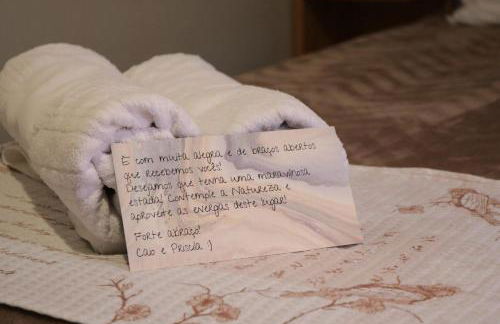 É com muita alegria e de braços abertos
que recebemos vocês!
Desejamos que tenha uma maravilhosa
estadia! Contemple a Natureza e
aproveite as energias deste lugar!
Forte abraço!
Caio e Priscila :)